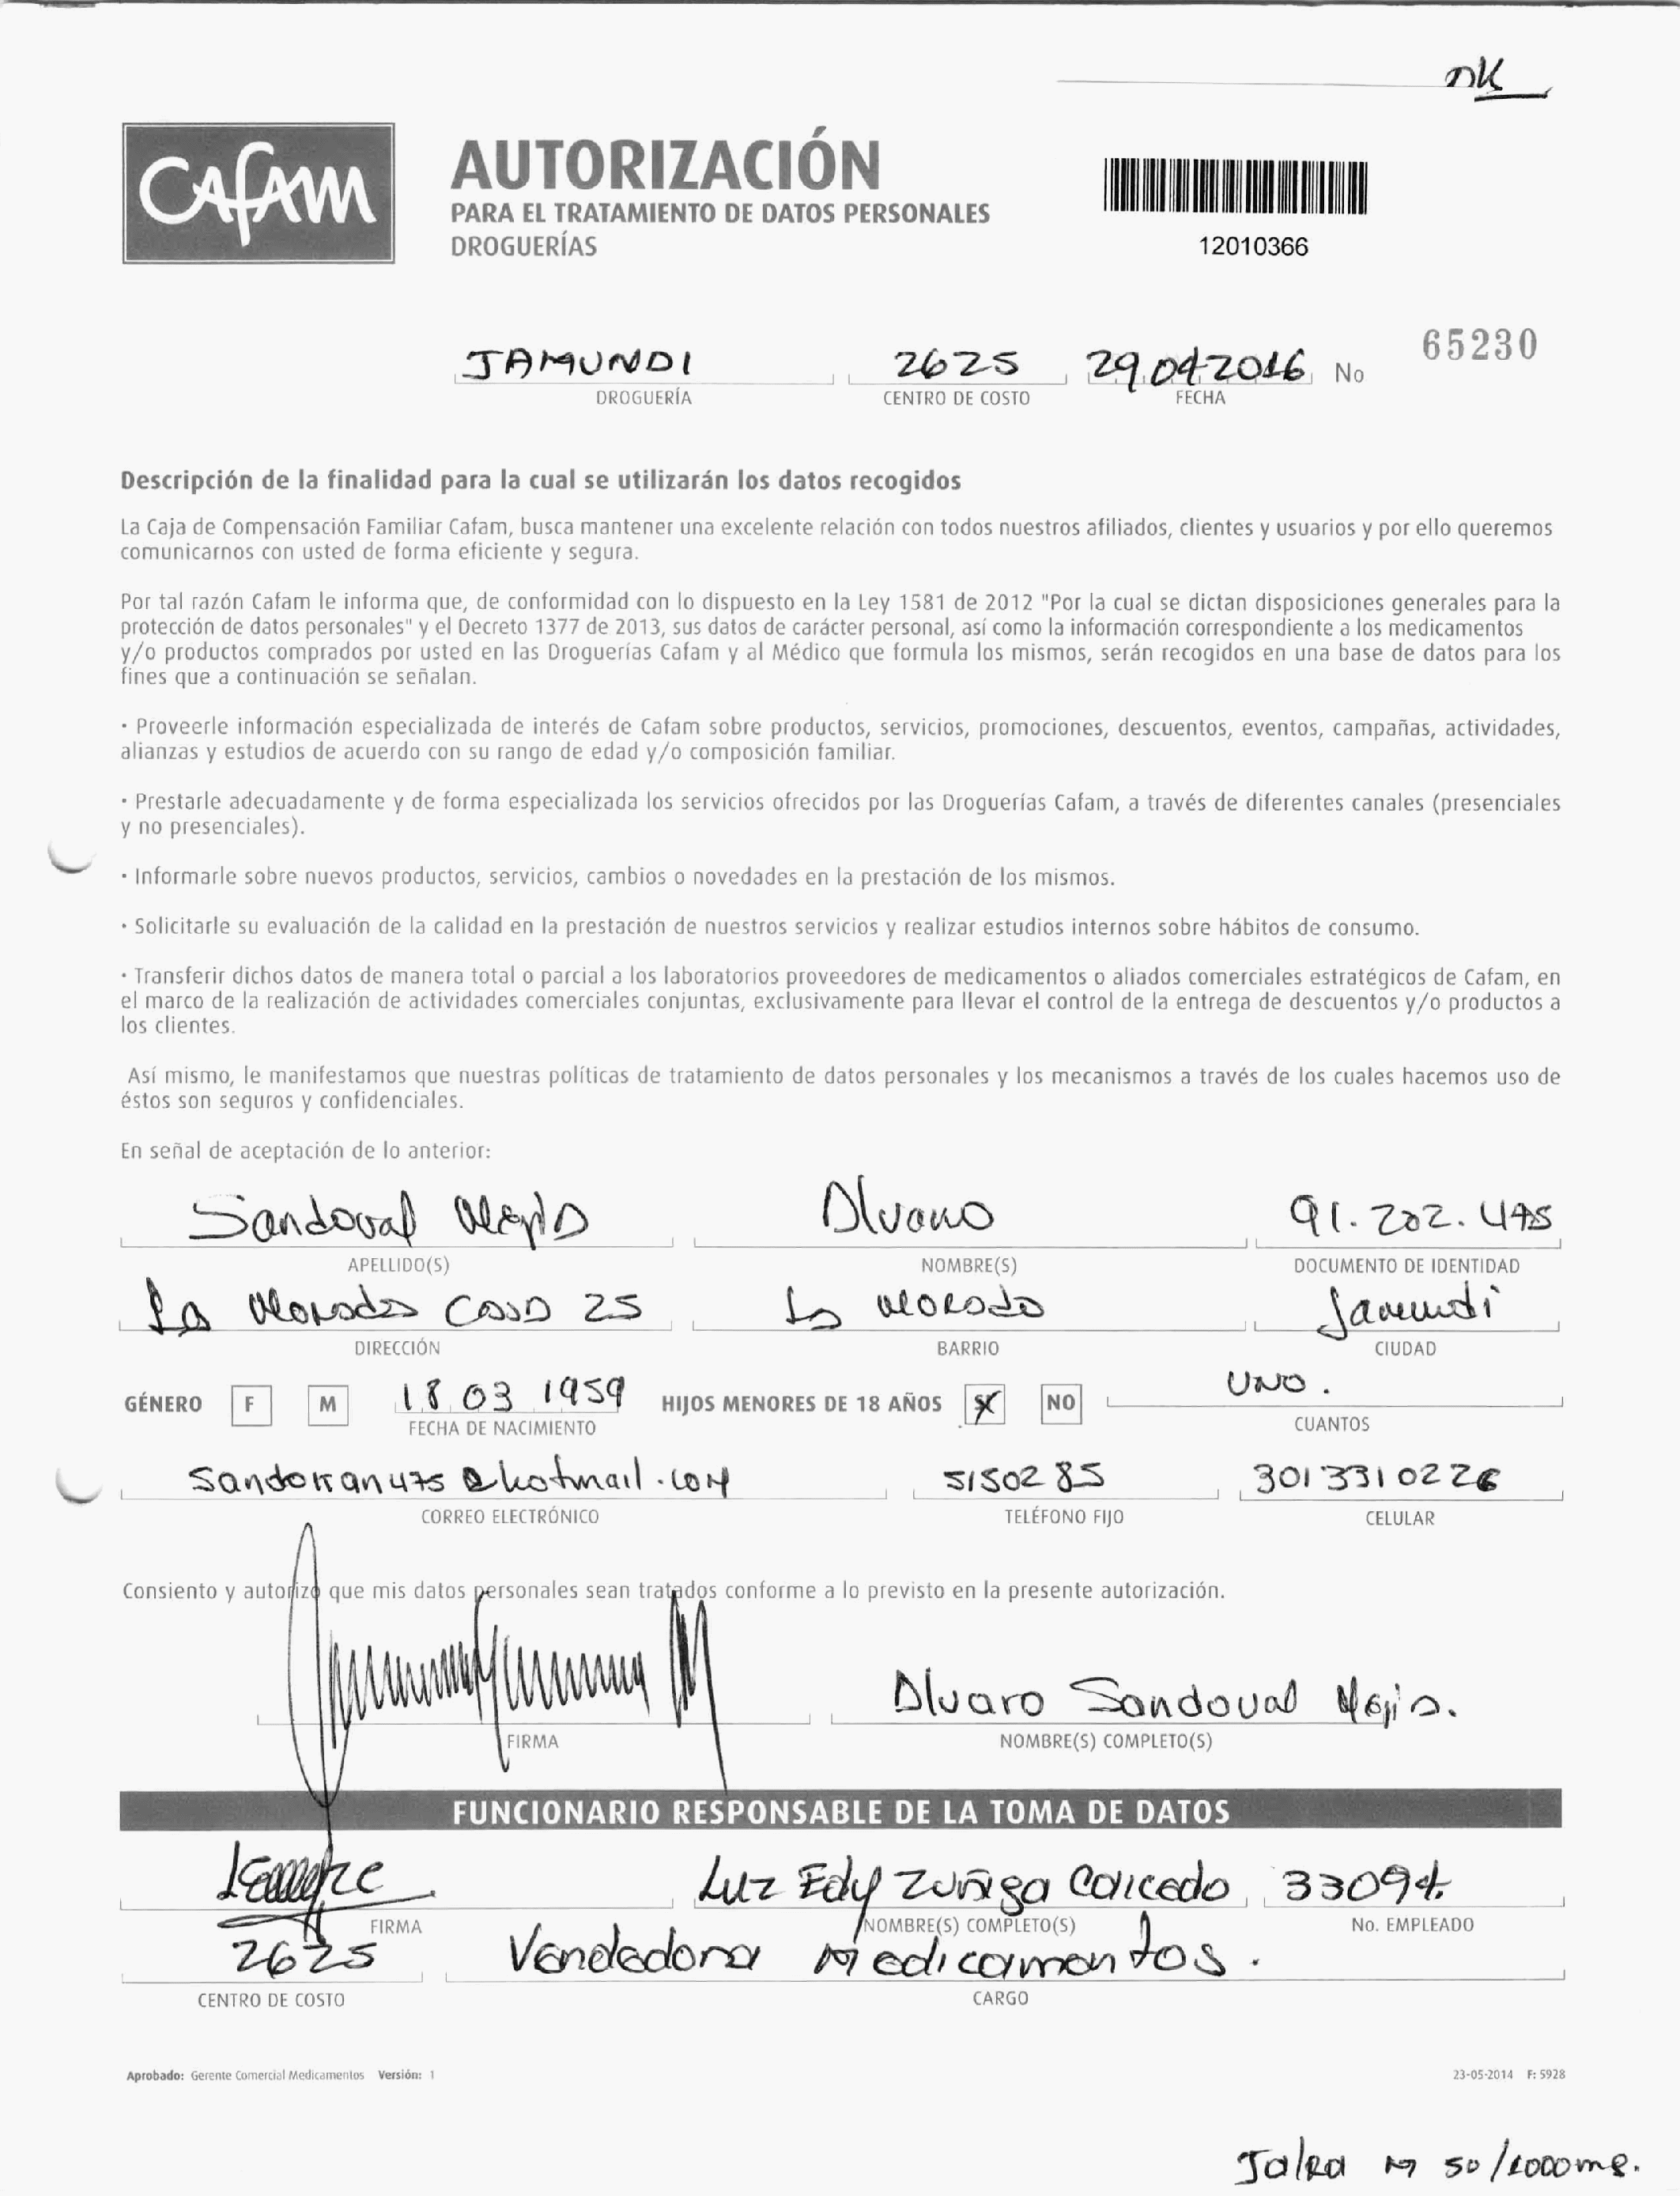 DK
CAFAM
AUTORIZACIÓN
PARA EL TRATAMIENTO DE DATOS PERSONALES
DROGUERÍAS
12010366
JAMUNDI 2625 29 04 2016 No 65230
DROGUERÍA CENTRO DE COSTO FECHA
Descripción de la finalidad para la cual se utilizarán los datos recogidos
La Caja de Compensación Familiar Cafam, busca mantener una excelente relación con todos nuestros afiliados, clientes y usuarios y por ello queremos
comunicarnos con usted de forma eficiente y segura.
Por tal razón Cafam le informa que, de conformidad con lo dispuesto en la Ley 1581 de 2012 "Por la cual se dictan disposiciones generales para la
protección de datos personales" y el Decreto 1377 de 2013, sus datos de carácter personal, así como la información correspondiente a los medicamentos
y/o productos comprados por usted en las Droguerías Cafam y al Médico que formula los mismos, serán recogidos en una base de datos para los
fines que a continuación se señalan.
· Proveerle información especializada de interés de Cafam sobre productos, servicios, promociones, descuentos, eventos, campañas, actividades,
alianzas y estudios de acuerdo con su rango de edad y/o composición familiar.
· Prestarle adecuadamente y de forma especializada los servicios ofrecidos por las Droguerías Cafam, a través de diferentes canales (presenciales
y no presenciales).
· Informarle sobre nuevos productos, servicios, cambios o novedades en la prestación de los mismos.
· Solicitarle su evaluación de la calidad en la prestación de nuestros servicios y realizar estudios internos sobre hábitos de consumo.
· Transferir dichos datos de manera total o parcial a los laboratorios proveedores de medicamentos o aliados comerciales estratégicos de Cafam, en
el marco de la realización de actividades comerciales conjuntas, exclusivamente para llevar el control de la entrega de descuentos y/o productos a
los clientes.
Así mismo, le manifestamos que nuestras políticas de tratamiento de datos personales y los mecanismos a través de los cuales hacemos uso de
éstos son seguros y confidenciales.
En señal de aceptación de lo anterior:
Sandoval Mejia Alvaro 91.202.475
APELLIDO(S) NOMBRE(S) DOCUMENTO DE IDENTIDAD
La Morada Casa 25 La Morada Jamundi
DIRECCIÓN BARRIO CIUDAD
GÉNERO F M 18 03 1959 HIJOS MENORES DE 18 AÑOS SI NO UNO.
FECHA DE NACIMIENTO CUANTOS
sandokan475@hotmail.com 5150285 3013310226
CORREO ELECTRÓNICO TELÉFONO FIJO CELULAR
Consiento y autorizo que mis datos personales sean tratados conforme a lo previsto en la presente autorización.
Alvaro Sandoval Mejia.
FIRMA NOMBRE(S) COMPLETO(S)
FUNCIONARIO RESPONSABLE DE LA TOMA DE DATOS
Luz Edy Zuñiga Caicedo 33094.
FIRMA NOMBRE(S) COMPLETO(S) No. EMPLEADO
2625 Vendedora Medicamentos.
CENTRO DE COSTO CARGO
Aprobado: Gerente Comercial Medicamentos Versión: 1 23-05-2014 F: 5928
Jalra M 50/1000mg.